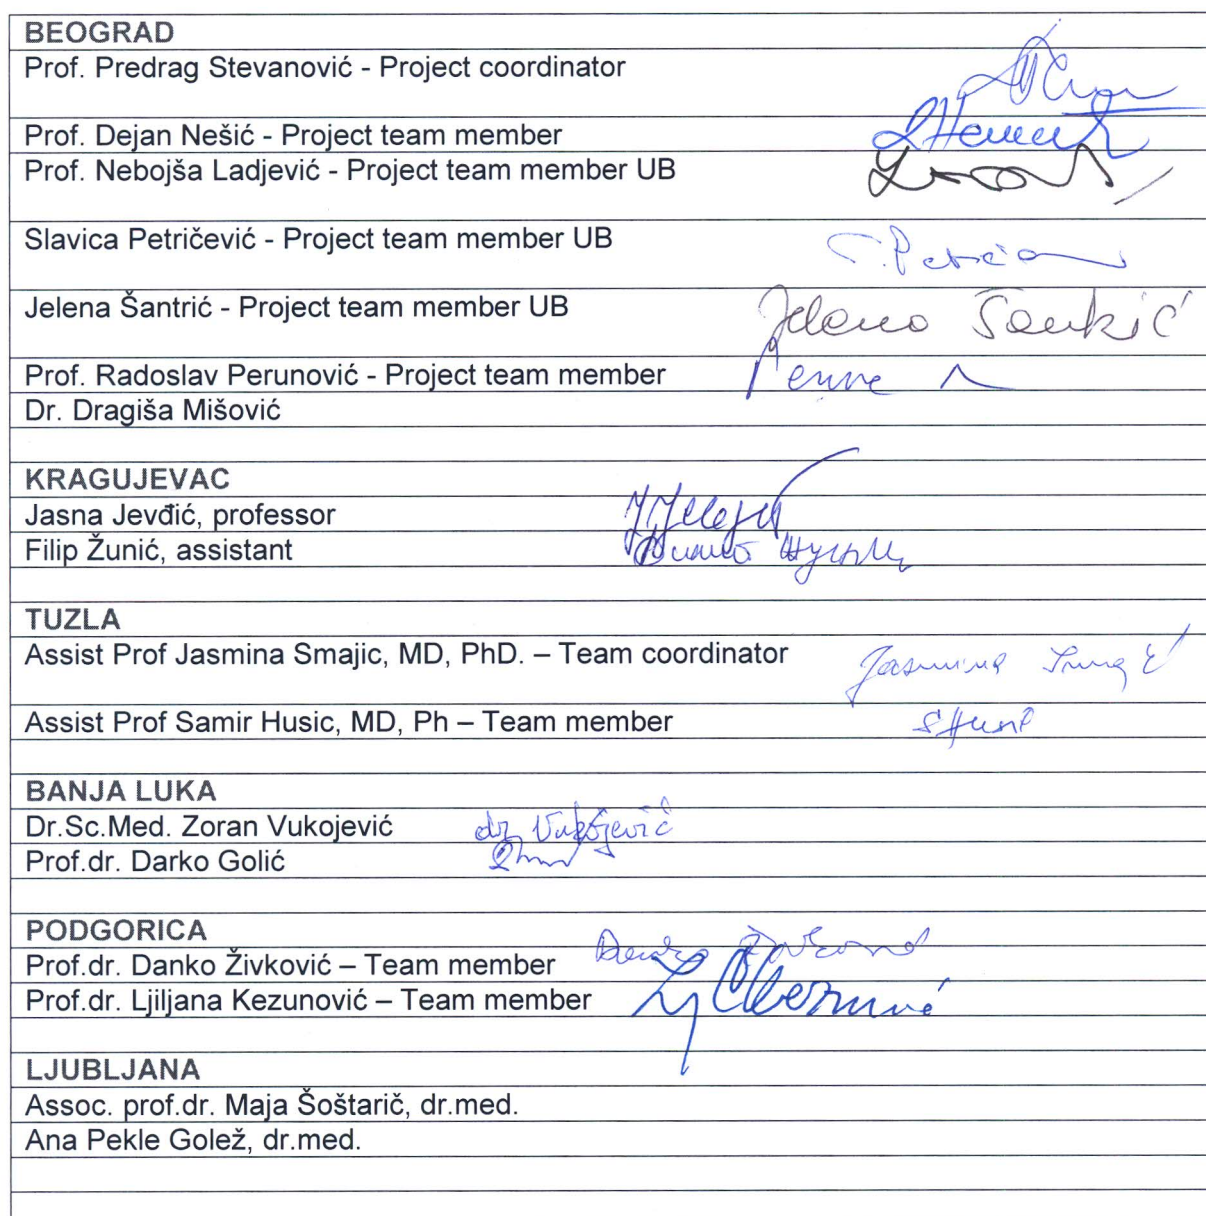 BEOGRAD
Prof. Predrag Stevanović - Project coordinator
Prof. Dejan Nešić - Project team member
Prof. Nebojša Ladjević - Project team member UB
Slavica Petričević - Project team member UB
Jelena Šantrić - Project team member UB
Jelena Šantrić
Prof. Radoslav Perunović - Project team member
Dr. Dragiša Mišović
KRAGUJEVAC
Jasna Jevđić, professor
Filip Žunić, assistant
TUZLA
Assist Prof Jasmina Smajic, MD, PhD. – Team coordinator
Jasmina
Assist Prof Samir Husic, MD, Ph – Team member
BANJA LUKA
Dr.Sc.Med. Zoran Vukojević dr Vukojević
Prof.dr. Darko Golić
PODGORICA
Prof.dr. Danko Živković – Team member
Prof.dr. Ljiljana Kezunović – Team member
LJUBLJANA
Assoc. prof.dr. Maja Šoštarič, dr.med.
Ana Pekle Golež, dr.med.